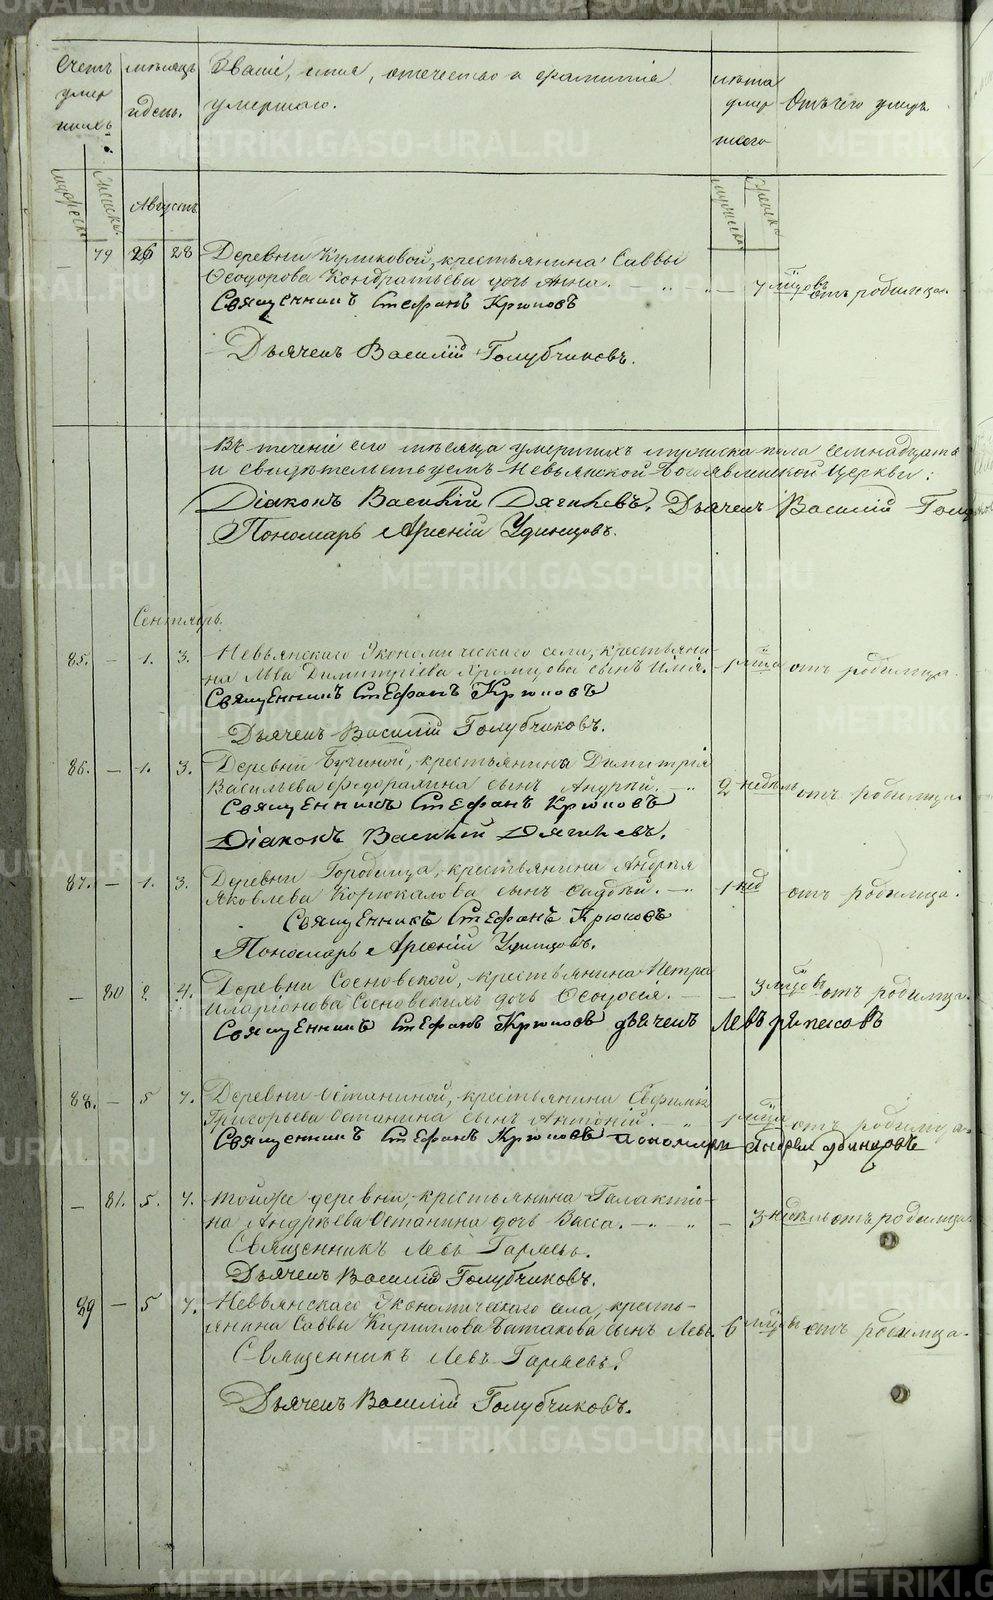 Счетъ умер шихъ.
мѣсяцъ и день.
Званіе, имя, отечество и фамилія
умершаго.
лѣта умер шаго
Отъ чего умеръ
мужеска женска
Августъ
мужеска женска
— 79 26 28 Деревни Куликовой, крестьянина Саввы
Ѳеодорова Кондратьева дочь Анна. — 7 мѣсяцовъ отъ родимца.
Священникъ Стефанъ Крюковъ
Дьячекъ Василій Голубчиковъ.
Въ теченіе сего мѣсяца умершихъ мужеска пола семнадцать
и свидѣтельствуемъ Невьянской Богоявленской Церкви:
Діаконъ Василій Дягилевъ. Дьячекъ Василій
Пономарь Арсеній Удинцовъ.
Сентябрь.
85. — 1. 3. Невьянскаго Экономическаго села, крестьяни-
на Льва Димитріева сынъ Илія. 1 мѣсяца отъ родимца.
Священникъ Стефанъ Крюковъ
Дьячекъ Василій Голубчиковъ.
86. — 1. 3. Деревни Бучиной, крестьянина Димитрія
Васильева сынъ Андрей. 2 недѣль отъ родимца
Священникъ Стефанъ Крюковъ
Діаконъ Василій Дягилевъ.
87. — 1. 3. Деревни Городища, крестьянина Андрея
Яковлева Корюкалова сынъ Андрей. — 1 нед отъ родимца.
Священникъ Стефанъ Крюковъ
Пономарь Арсеній Удинцовъ.
— 80 2. 4. Деревни Сосновской, крестьянина Петра
Иларіонова Сосновскихъ дочь Ѳеодосія. — 3 мѣсяцовъ отъ родимца.
Священникъ Стефанъ Крюковъ дьячекъ Левъ
88. — 5 7. Деревни Останиной, крестьянина Евфимія
Григорьева Останина сынъ Антоній. — 1 мѣсяца отъ родимца.
Священникъ Стефанъ Крюковъ Пономарь Андрей Удинцовъ
— 81. 5. 7. Той же деревни, крестьянина Галактіо-
на Андрѣева Останина дочь Васса. — 3 недѣль отъ родимца.
Священникъ Левъ Гаряевъ.
Дьячекъ Василій Голубчиковъ.
89 — 5 7. Невьянскаго Экономическаго села, кресть-
янина Саввы Кириллова Батакова сынъ Левъ. 6 мѣсяцовъ отъ родимца.
Священникъ Левъ Гаряевъ
Дьячекъ Василій Голубчиковъ.
METRIKI.GASO-URAL.RU